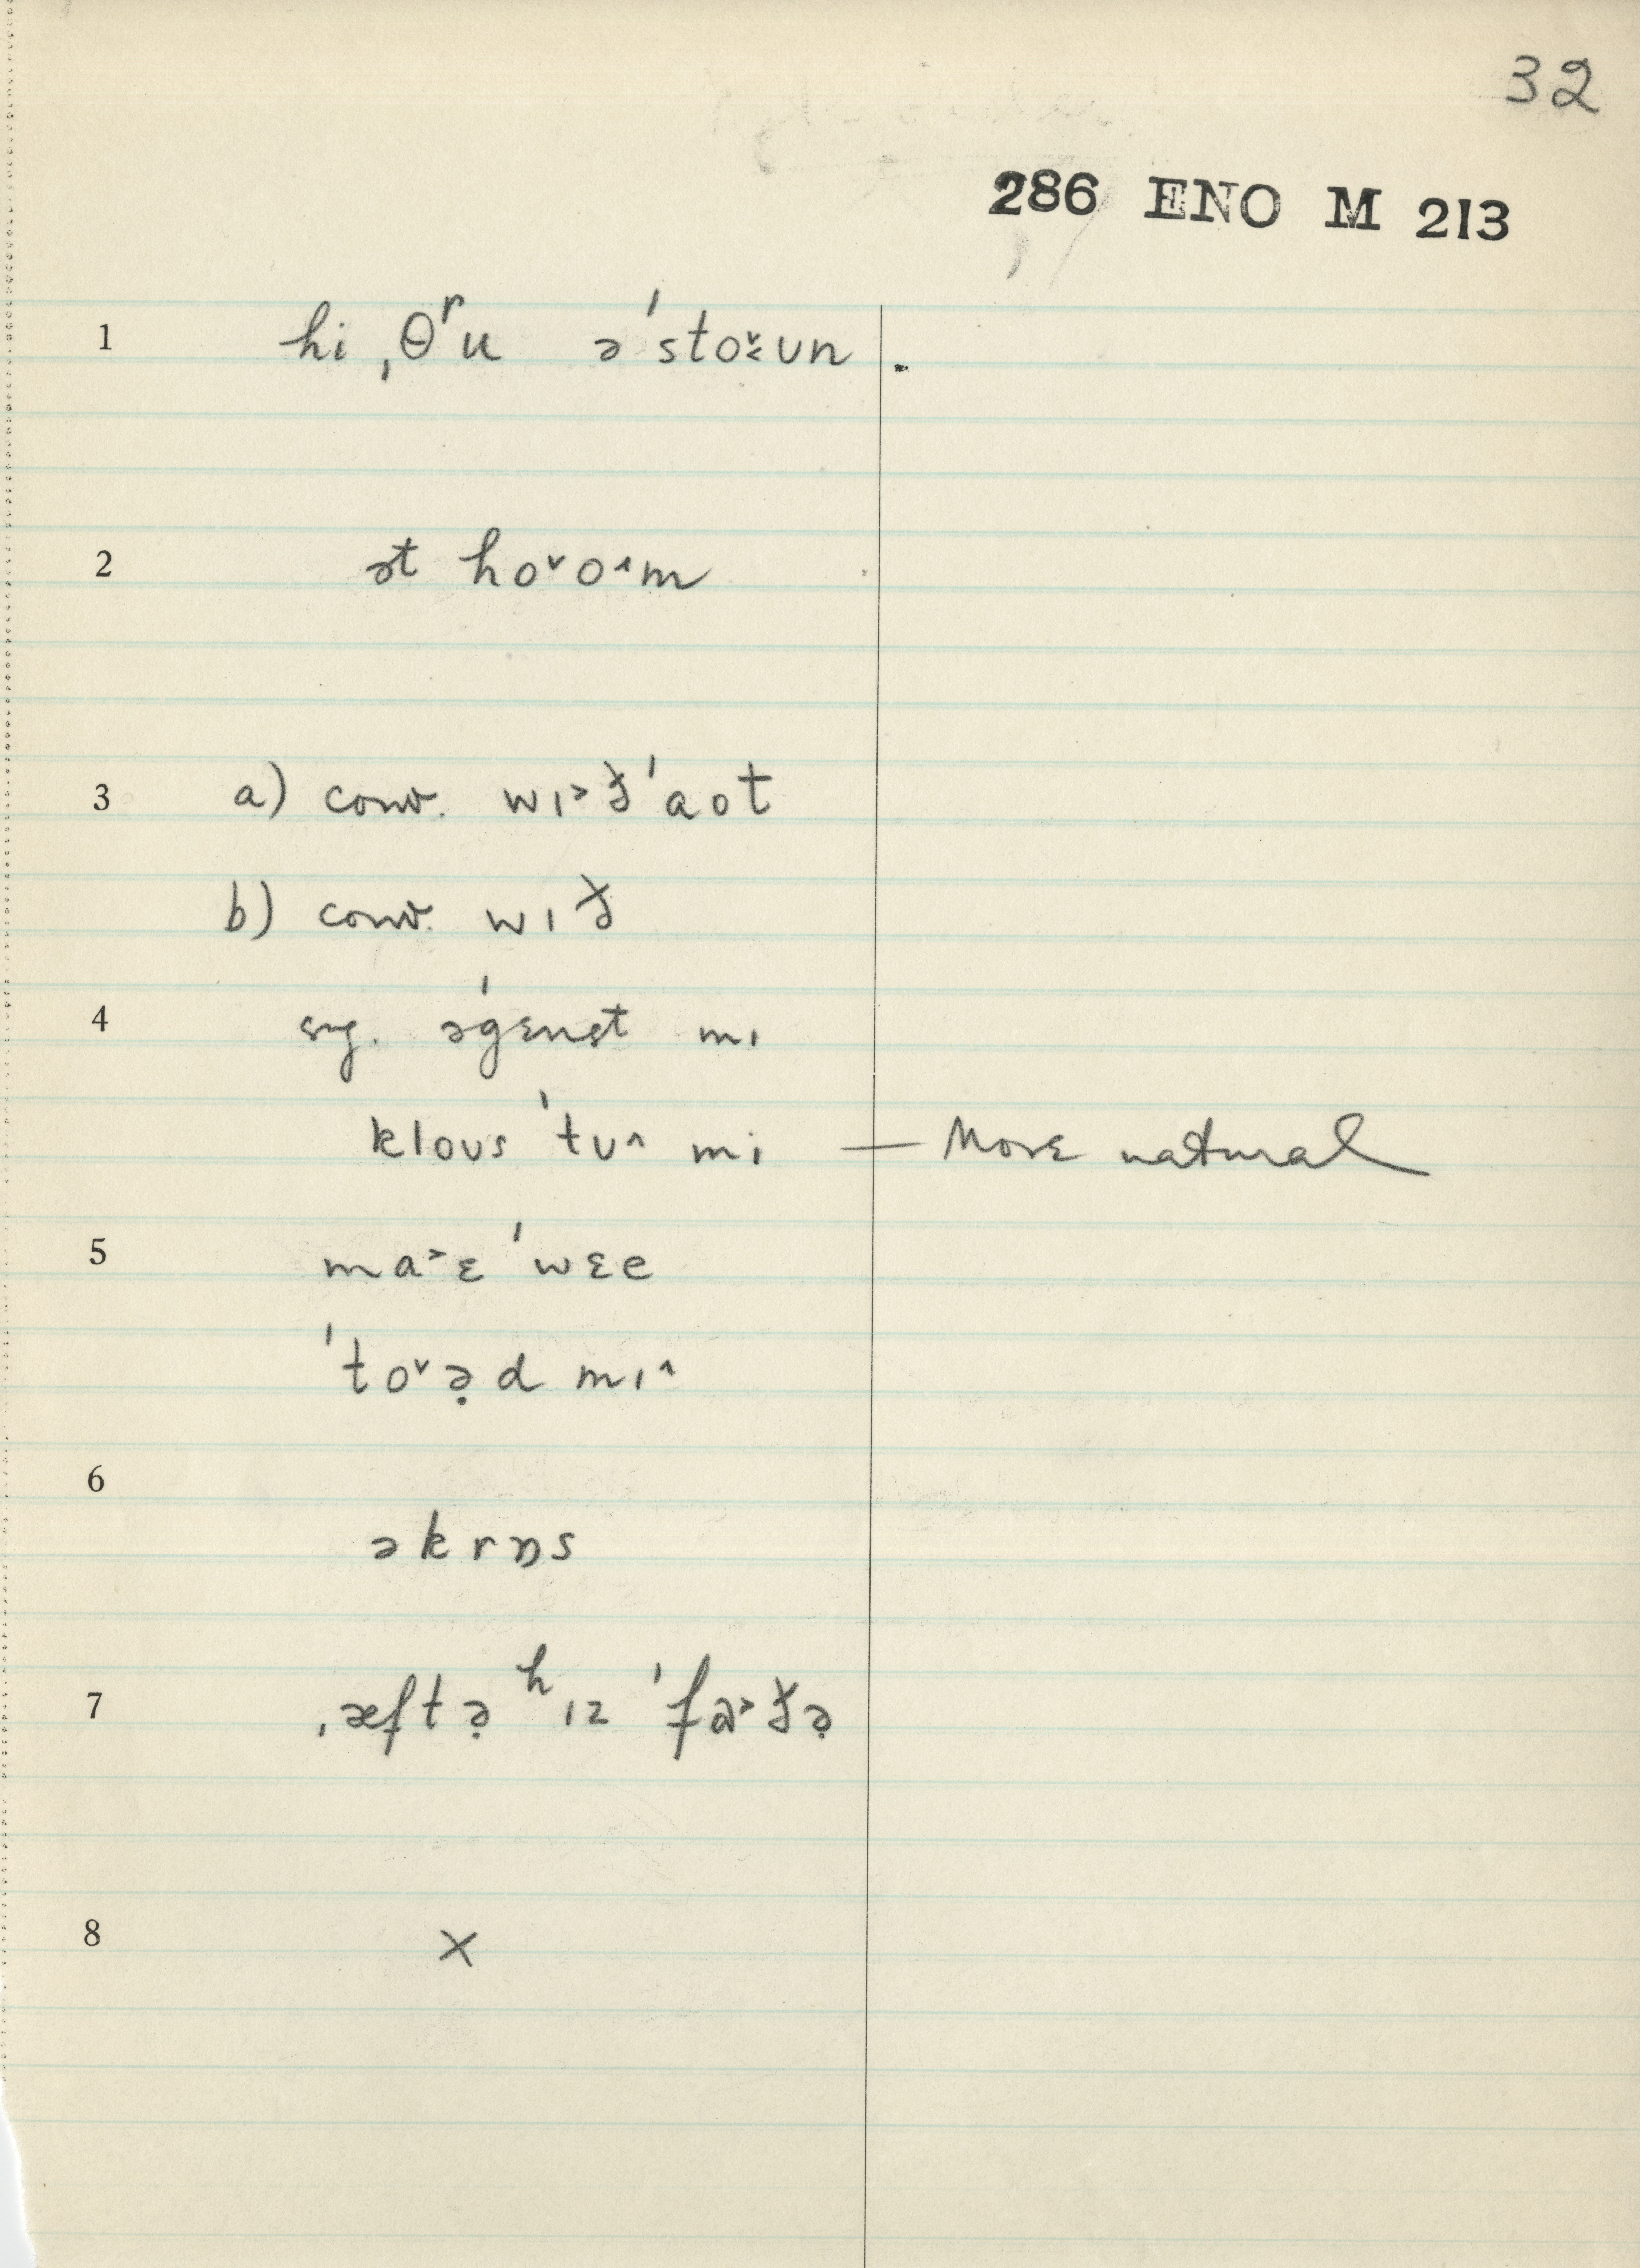 32
286 ENO M 213
1 hi ˌθʳu ə ˈstoˇʊn
2 ət hoˇoˆm
3 a) conv. wɪ˃ðˈaot
b) conv. wɪð
4 sug. əˈgɛnst mɪ
kloʊs ˈtʊˆ mi — More natural
5 ma˃ɛ ˈwɛe
ˈtoˇə̣d mɪˆ
6 əkrɒs
7 ˌæftə̣ ʰɪz ˈfɑ˃ðə̣
8 ×